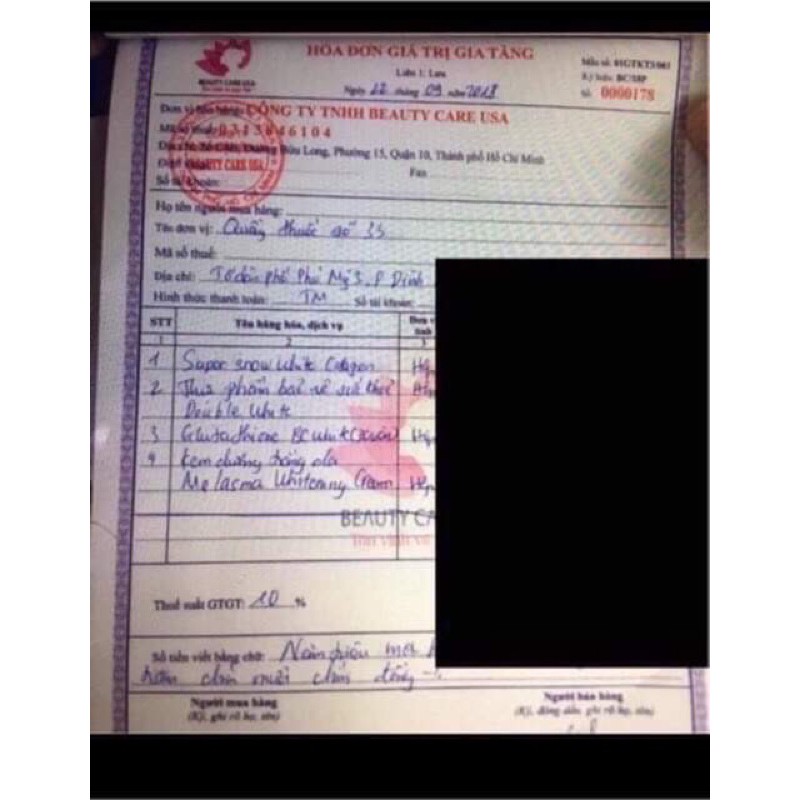 HÓA ĐƠN GIÁ TRỊ GIA TĂNG
Mẫu số: 01GTKT3/001
Liên 1: Lưu
Ký hiệu: BC/18P
BEAUTY CARE USA
Ngày 12 tháng 09 năm 2018
Số: 0000178
Đơn vị bán hàng: CÔNG TY TNHH BEAUTY CARE USA
Mã số thuế: 0313046104
Bửu Long, Phường 15, Quận 10, Thành phố Hồ Chí Minh
BEAUTY CARE USA
Fax
Số tài khoản:
Họ tên người mua hàng:
Tên đơn vị: Quầy thuốc số 35
Mã số thuế:
Địa chỉ: Tổ dân phố Phú Mỹ 3, P Đình
Hình thức thanh toán: TM Số tài khoản:
STT Tên hàng hóa, dịch vụ Đơn v tính
1 2 3
1 Super snow white Collagen Hộp
2 Thực phẩm bảo vệ sức khỏe
Double White
3 Glutathione BC White Hộp
4 Kem dưỡng trắng da
Melasma Whitening Cream Hộp
BEAUTY CA
Thuế suất GTGT: 10 %
Số tiền viết bằng chữ: Năm triệu một
trăm chín mươi chín đồng
Người mua hàng Người bán hàng
(Ký, ghi rõ họ, tên) (Ký, đóng dấu, ghi rõ họ, tên)